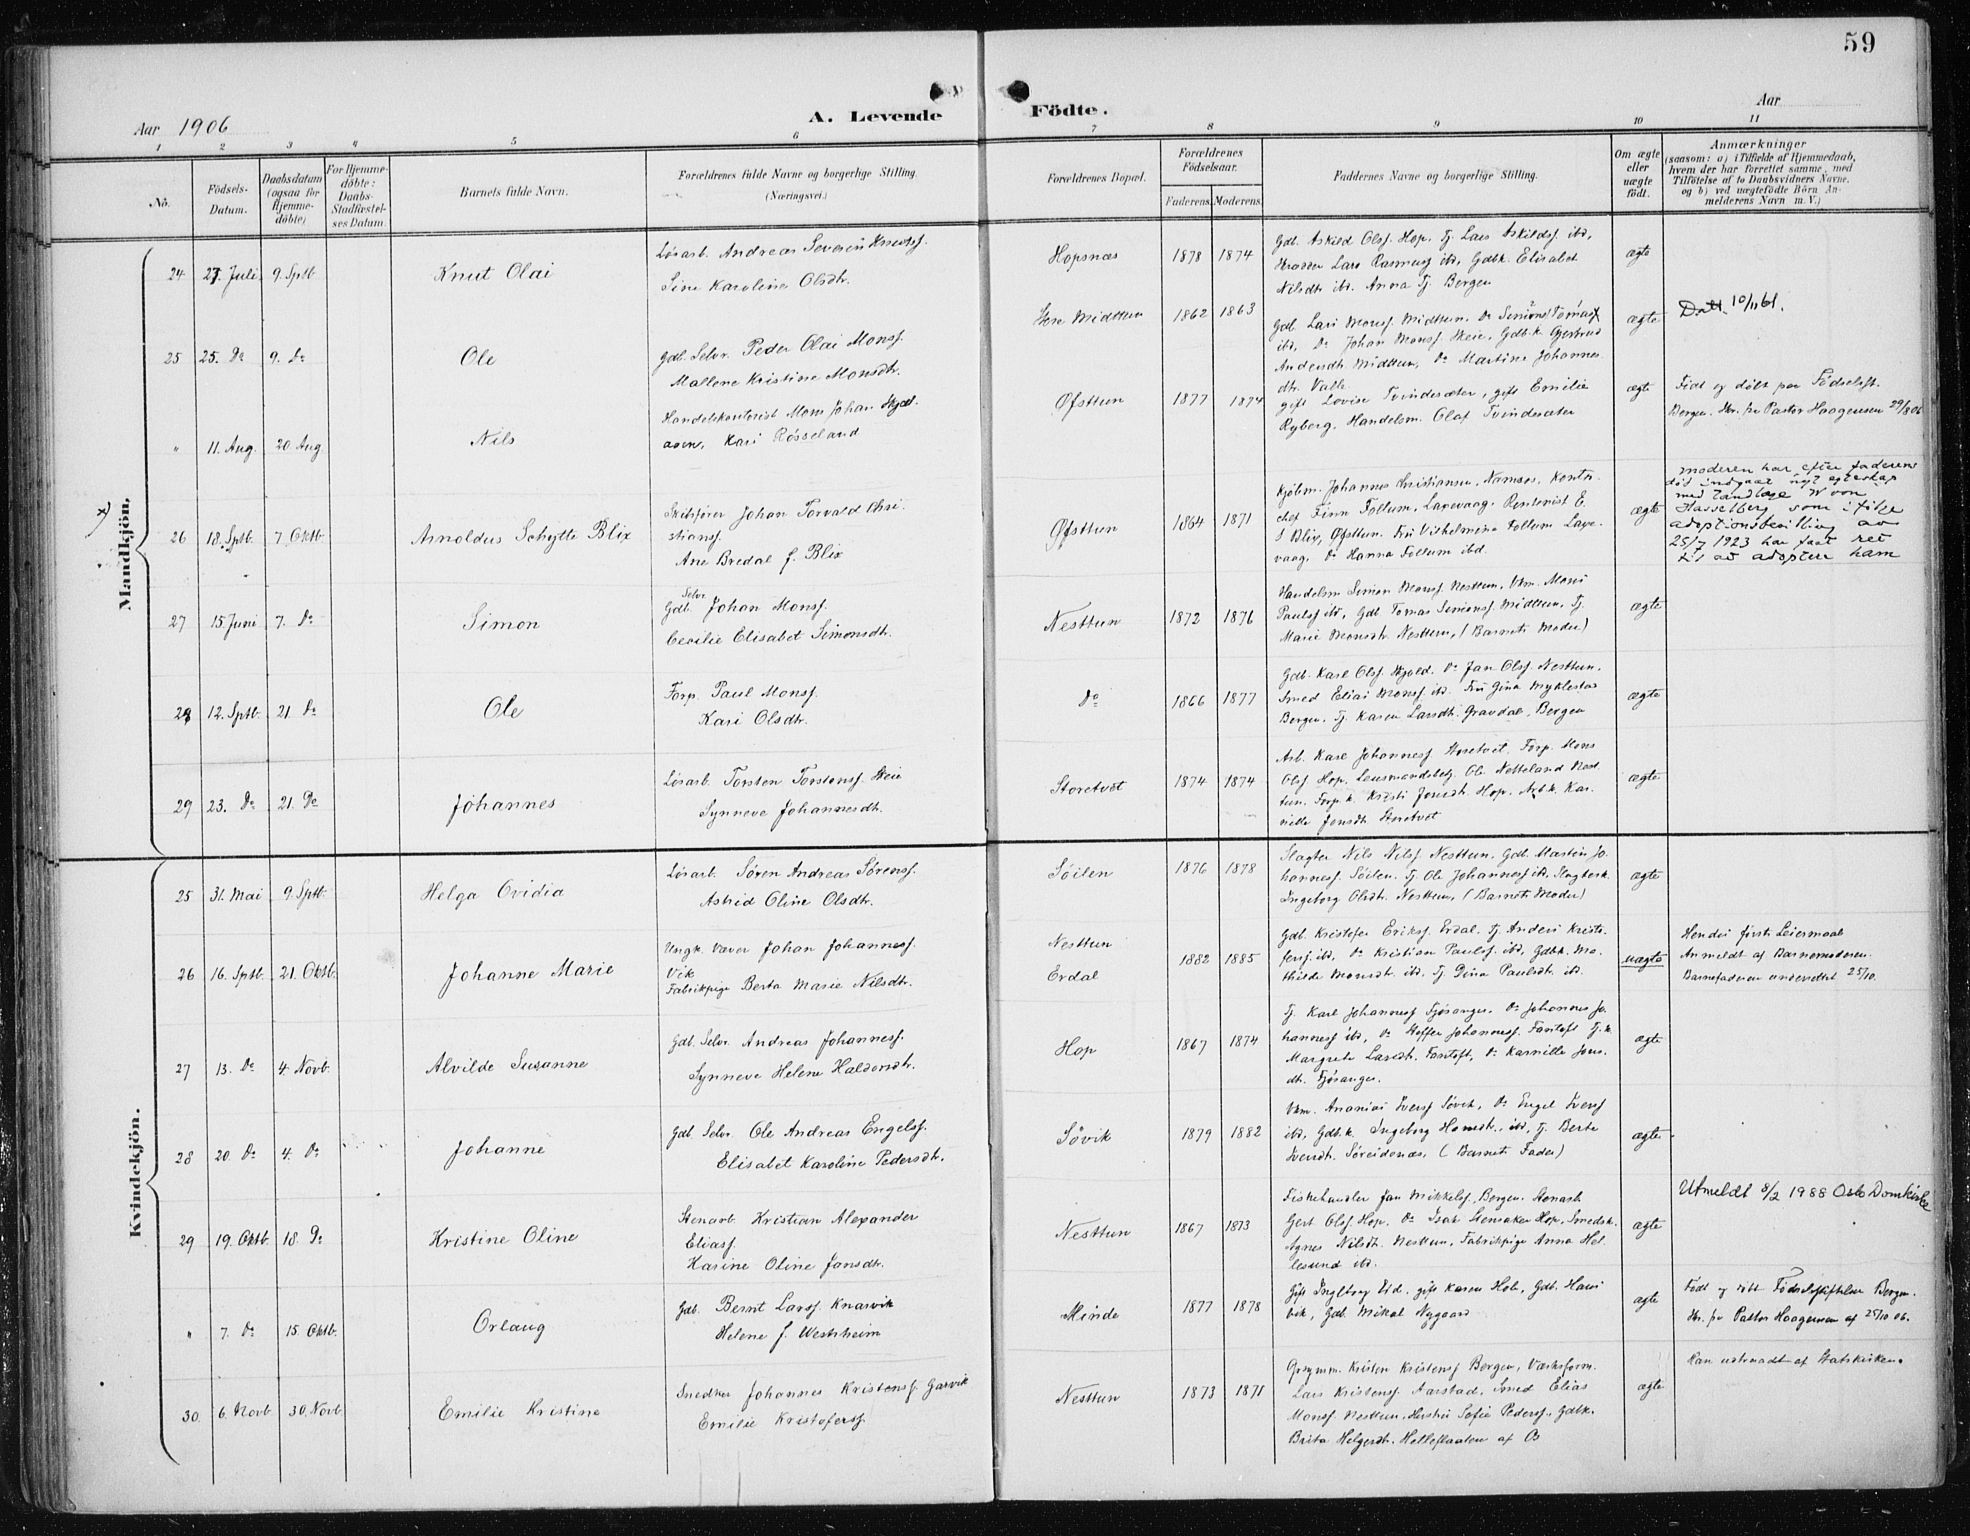 59
Aar 1906
A. Levende
Födte.
Aar
1 2 3 4 5 6 7 8 9 10 11
No.
Födsels-Datum.
Daabsdatum (ogsaa for Hjemme-döbte)
For Hjemme-döbte: Daabs-Stadfæstel-ses Datum.
Barnets fulde Navn.
Forældrenes fulde Navne og borgerlige Stilling. (Næringsvei.)
Forældrenes Bopæl.
Forældrenes Födselsaar.
Faderens. Moderens.
Faddernes Navne og borgerlige Stilling.
Om ægte eller uægte födt.
Anmærkninger
(saasom: a) i Tilfælde af Hjemmedaab,
hvem der har forrettet samme, med
Tilföielse af to Daabsvidners Navne.
og b) ved uægtefödte Börn An-
melderens Navn m. V.)
Mandkjön.
24 27. Juli 9. Sptb. Knut Olai
Løsarb. Andreas Severin Knutsf.
Sine Karoline Olsdtr.
Hopsnæs 1878 1874
Gdb. Askild Olsf. Hop. Tj. Lars Askildsf. ibd,
Skrædder Lars Rasmusf ibd, Gdbk. Elisabet
Nilsdtr ibd. Anna Tj. Bergen
ægte
25 25. Do 9. Do Ole
Gdb. Selv. Peder Olai Monsf.
Mallene Kristine Monsdtr.
Store Midttun 1862 1863
Gdb. Lars Monsf. Midttun. Do Simon Tomasf
ibd, Do Johan Monsf. Skeie, Gdb.k. Gjertrud
Andersdtr Midttun, Do Martine Johannes
dtr. Valle
ægte
Datt. 10/11 61.
" 11. Aug. 20. Aug. Nils
Handelskontorist Mons Johan Skjol-
aven, Kari Røsseland
Øfsttun 1877 1874
gift Lovise Tvinderæter, gift Emilie
Ryberg. Handelsm. Olaf Tvinderæter
ægte
Født og døbt paa Fødselsst.
Bergen. Skr. fra Pastor Haagensen 29/8 06
x)
26 18. Sptb. 7. Oktb. Arnoldus Schytte Blix
Skibsfører Johan Torvald Chri
stiansf.
Ane Bredal f. Blix
Øfsttun 1864 1871
Kjøbm. Johannes Christiansen, Namsos, Kontr.
chef Finn Follum, Laxevaag. Rentenist E.
S Blix, Øfsttun. Fru Vilhelmine Follum Laxe-
vaag, Do Hanna Follum ibd.
ægte
moderen har efter faderens
död indgaat nyt egteskap
med tandlæge W von
Hasselberg som i følge
adoptionsbevilling av
25/7 1923 har faat ret
til at adoptere ham
27 15. Juni 7. Do Simon
Gdb. Selv. Johan Monsf.
Cecilie Elisabet Simonsdtr.
Nesttun 1872 1876
Handelsm Simon Monsf Nesttun, Vkm. Mons
Paulsf ibd, Gdb. Tomas Simonsf Midttun, Tj.
Marie Monsdtr. Nesttun, (Barnets Moder)
ægte
28 12. Sptb. 21. Do Ole
Forp. Paul Monsf.
Kari Olsdtr.
Do 1866 1877
Gdb. Karl Olsf. Skjold. Do Jan Olsf Nesttun.
Smed Elias Monsf. ibd. Fru Gina Myklestad
Bergen. Tj. Karen Larsdtr. Gravdal, Bergen
ægte
29 23. Do 21. Do Johannes
Løsarb. Torsten Torstensf. Skeie
Synneve Johannesdtr.
Storetvet 1874 1874
Arb. Karl Johannesf Storetvet, Forp. Mons
Olsf Hop, Lensmandsbetj. Ole Netteland Nest
tun. Forp.k. Kristi Jonsdtr. Hop. Arb.k. Kar-
nille Jonsdtr Storetvet
ægte
Kvindekjön.
25 31. Mai 9. Sptb. Helga Ovidia
Løsarb. Søren Andreas Sørensf.
Astrid Oline Olsdtr.
Søilen 1876 1878
Slagter Nils Nilsf Nesttun. Gdb. Martin Jo-
hannesf. Søilen. Tj. Ole Johannesf ibd. Slagterk.
Ingeborg Olsdtr. Nesttun, (Barnets Moder)
ægte
26 16. Sptb. 21. Oktb. Johanne Marie
Ungk. Væver Johan Johannesf.
Vik
Fabrikpige Berta Marie Nilsdtr.
Nesttun
Erdal
1882 1885
Gdb. Kristofer Eriksf. Erdal. Tj. Anders Kristo-
fersf. ibd, Do Kristian Paulsf. ibd, Gdbk. Ma-
thilde Monsdtr. ibd, Tj. Gina Paulsdtr ibd.
uægte
Hendes første Leiermaal
Anmeldt af Barnemoderen.
Barnefaderen underrettet 25/10.
27 13. Do 4. Novb. Alvilde Susanne
Gdb. Selv. Andreas Johannesf.
Synneve Helene Haldorsdtr.
Hop 1867 1874
Tj. Karl Johannesf Fjøsanger. Do Johannes Jo-
hannesf ibd, Do Steffen Johannesf. Fantoft Tj.k.
Margrete Larsdtr, Fantoft, Do Karnille Jons-
dtr. Fjøsanger.
ægte
28 20. Do 4. Do Johanne
Gdb. Selv. Ole Andreas Engelsf.
Elisabet Karoline Pedersdtr.
Søvik 1879 1882
Vkm. Ananias Iversf Søvik, Do Engel Iversf
ibd, Gdb.k. Ingeborg Hansdtr. ibd, Tj. Berta
Iversdtr. Søreidenæs, (Barnets Fader)
ægte
29 19. Oktb. 18. Do Kristine Oline
Stenarb. Kristian Alexander
Eliasf.
Karine Oline Jansdtr.
Nesttun 1867 1873
Fiskehandler Jan Mikkelsf, Bergen. Stenarb
Gert Olsf. Hop. Do Isak Stensaker Hop, Smedsk.
Agnes Nilsdtr. Nesttun, Fabrikpige Anna Hel-
lesund ibd.
ægte
Utmeldt 8/2 1988 Oslo Domkirke
" 7. Do 15. Oktb. Orlaug
Gdb. Bernt Larsf. Knarvik
Helene f. Westrheim
Minde 1877 1878
Gift Ingeborg Eid, gift Karen Hol, Gdb. Hans
vik, Gdb. Mikal Nygaard
ægte
Født og døbt Fødselsstiftelsen Bergen.
Skr. fra Pastor Haagensen af 25/10 06.
30. 6. Novb. 30. Novb. Emilie Kristine
Snedker Johannes Kristensf. Garvik
Emilie Kristofersf.
Nesttun 1873 1871
Grosymm. Kristen Kristensf Bergen, Værksform.
Lars Kristensf. Aarstad, Smed Elias
Monsf. Nesttun, Hustru Sofie Pedersf., Gdbk.
Brita Helgesdtr. Helleflaaten af Os
ægte
Han udtraadt af Statskirken.